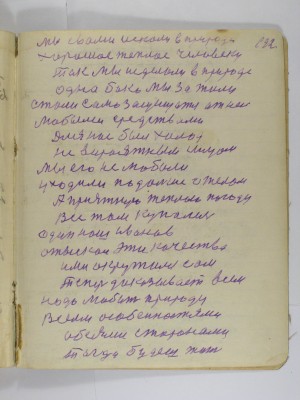 132
мы свами искали в природе
хорошее теплое человеки
Так мы и делали в природе
одна бока мы за
стали само защищать
любыми средствами
Для нас был холод
не вероятным
мы его не любили
уходили подальше
А приятную теплую погоду
Все там купались
один наш Иванов
отыскал эти качества
ими окружил сам
Тепер доказывает всем
надо любить природу
Всеми особенностями
обеими сторонами
тогда будем жит